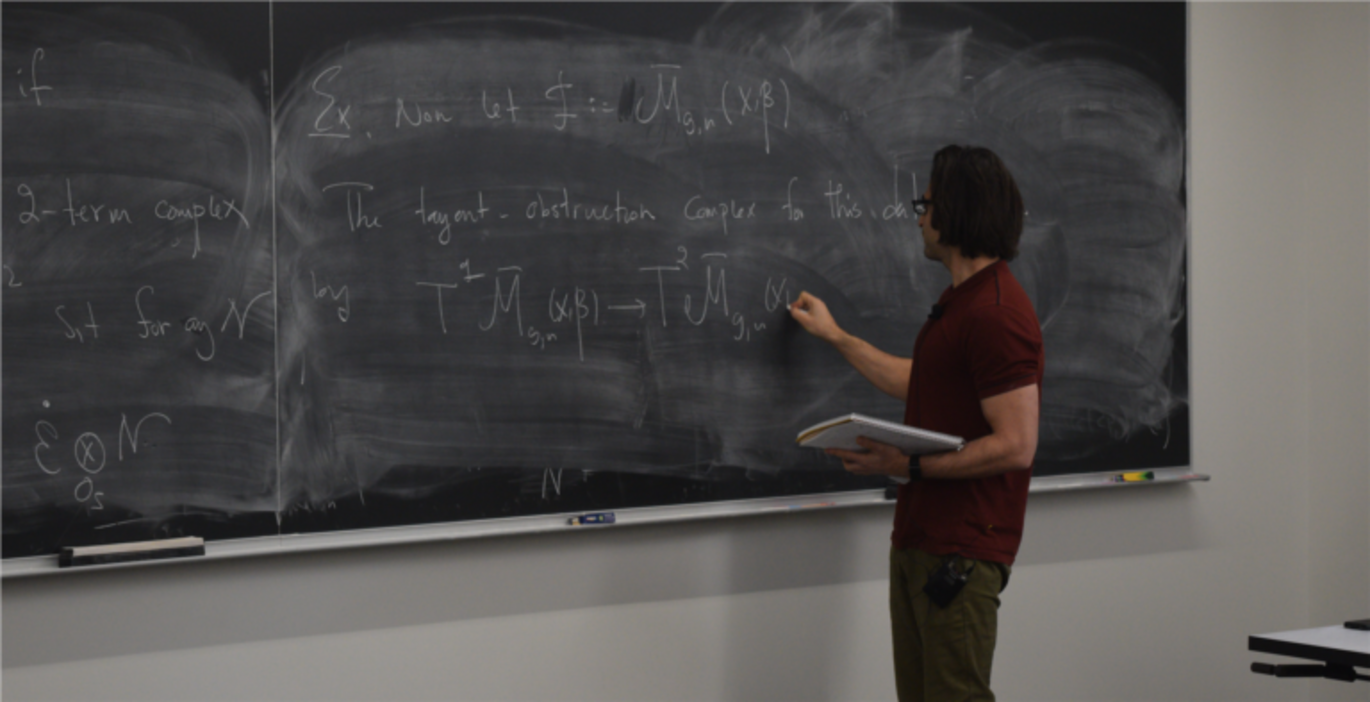 if
2-term complex
2
s.t for any N
Ė ⊗ N
O_S
Ex. Now let ℱ := M̄_{g,n}(X,β)
The tangent-obstruction complex for this
by T¹M̄_{g,n}(X,β) → T²M̄_{g,n}(X,
N